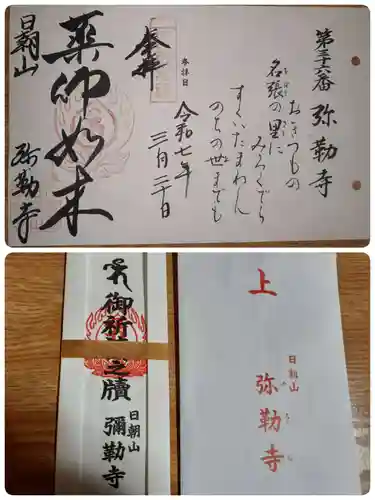 第三十六番 弥勒寺
おきつもの
名張の里に
みろくでら
すくいたまわん
のちの世までも
奉拝
参拝日
令和七年
三月二十日
薬師如来
日朝山
弥勒寺
御祈
之牘
日朝山
彌勒寺
上
日朝山
弥勒寺
みろくじ